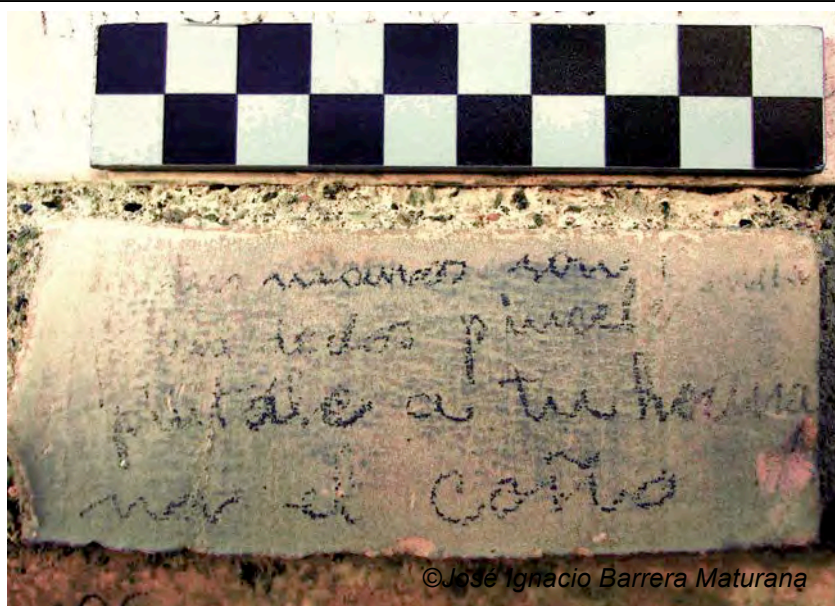 manos son
dedos pincel
pintale a tu herma
na el coño
©José Ignacio Barrera Maturana